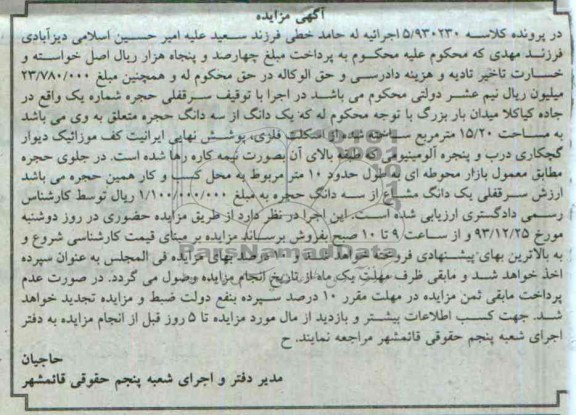 آگهی مزایده
در پرونده کلاسه ۵/۹۳۰۲۳۰ اجرائیه له حامد خطی فرزند سعید علیه امیر حسین اسلامی دیزآبادی
فرزند مهدی که محکوم علیه محکوم به پرداخت مبلغ چهارصد و پنجاه هزار ریال اصل خواسته و
خسارت تاخیر تادیه و هزینه دادرسی و حق الوکاله در حق محکوم له و همچنین مبلغ ۲۳/۷۸۰/۰۰۰
میلیون ریال نیم عشر دولتی محکوم می باشد در اجرا با توقیف سرقفلی حجره شماره یک واقع در
جاده کیاکلا میدان بار بزرگ با توجه محکوم له که یک دانگ از سه دانگ حجره متعلق به وی می باشد
به مساحت ۱۵/۲۰ مترمربع ساخته شده از اسکلت فلزی، پوشش نهایی ایرانیت کف موزائیک دیوار
گچکاری درب و پنجره آلومینیومی که طبقه بالای آن بصورت نیمه کاره رها شده است. در جلوی حجره
مطابق معمول بازار محوطه ای بطول حدود ۱۰ متر مربوط به محل کسب و کار همین حجره می باشد
ارزش سرقفلی یک دانگ مشاع از سه دانگ حجره به مبلغ ۱/۱۰۰/۰۰۰/۰۰۰ ریال توسط کارشناس
رسمی دادگستری ارزیابی شده است. این اجرا در نظر دارد از طریق مزایده حضوری در روز دوشنبه
مورخ ۹۳/۱۲/۲۵ و از ساعت ۹ تا ۱۰ صبح بفروش برساند مزایده بر مبنای قیمت کارشناسی شروع و
به بالاترین بهای پیشنهادی فروخته خواهد شد و ۱۰ درصد بهای مزایده فی المجلس به عنوان سپرده
اخذ خواهد شد و مابقی ظرف مهلت یک ماه از تاریخ انجام مزایده وصول می گردد. در صورت عدم
پرداخت مابقی ثمن مزایده در مهلت مقرر ۱۰ درصد سپرده بنفع دولت ضبط و مزایده تجدید خواهد
شد. جهت کسب اطلاعات بیشتر و بازدید از مال مورد مزایده تا ۵ روز قبل از انجام مزایده به دفتر
اجرای شعبه پنجم حقوقی قائمشهر مراجعه نمایند. ح
حاجیان
مدیر دفتر و اجرای شعبه پنجم حقوقی قائمشهر
ParsNamadData